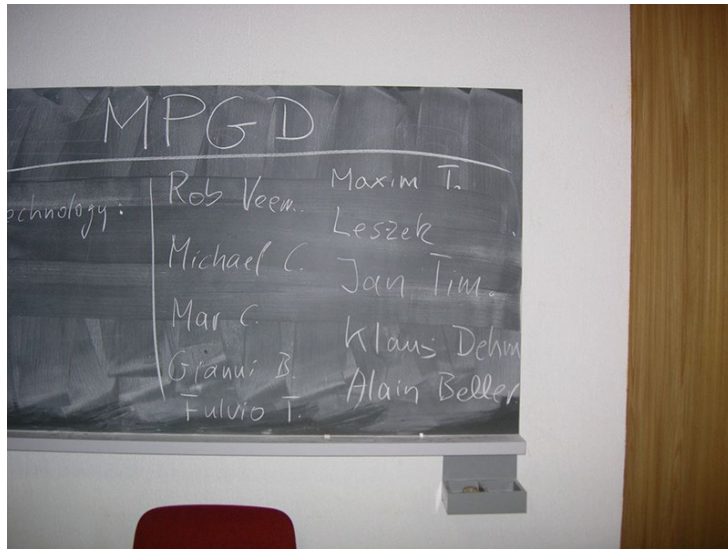 MPGD
Technology:
Rob Veem.
Michael C.
Mar C.
Gianni B.
Fulvio T.
Maxim T.
Leszek
Jan Tim.
Klaus Dehm
Alain Beller